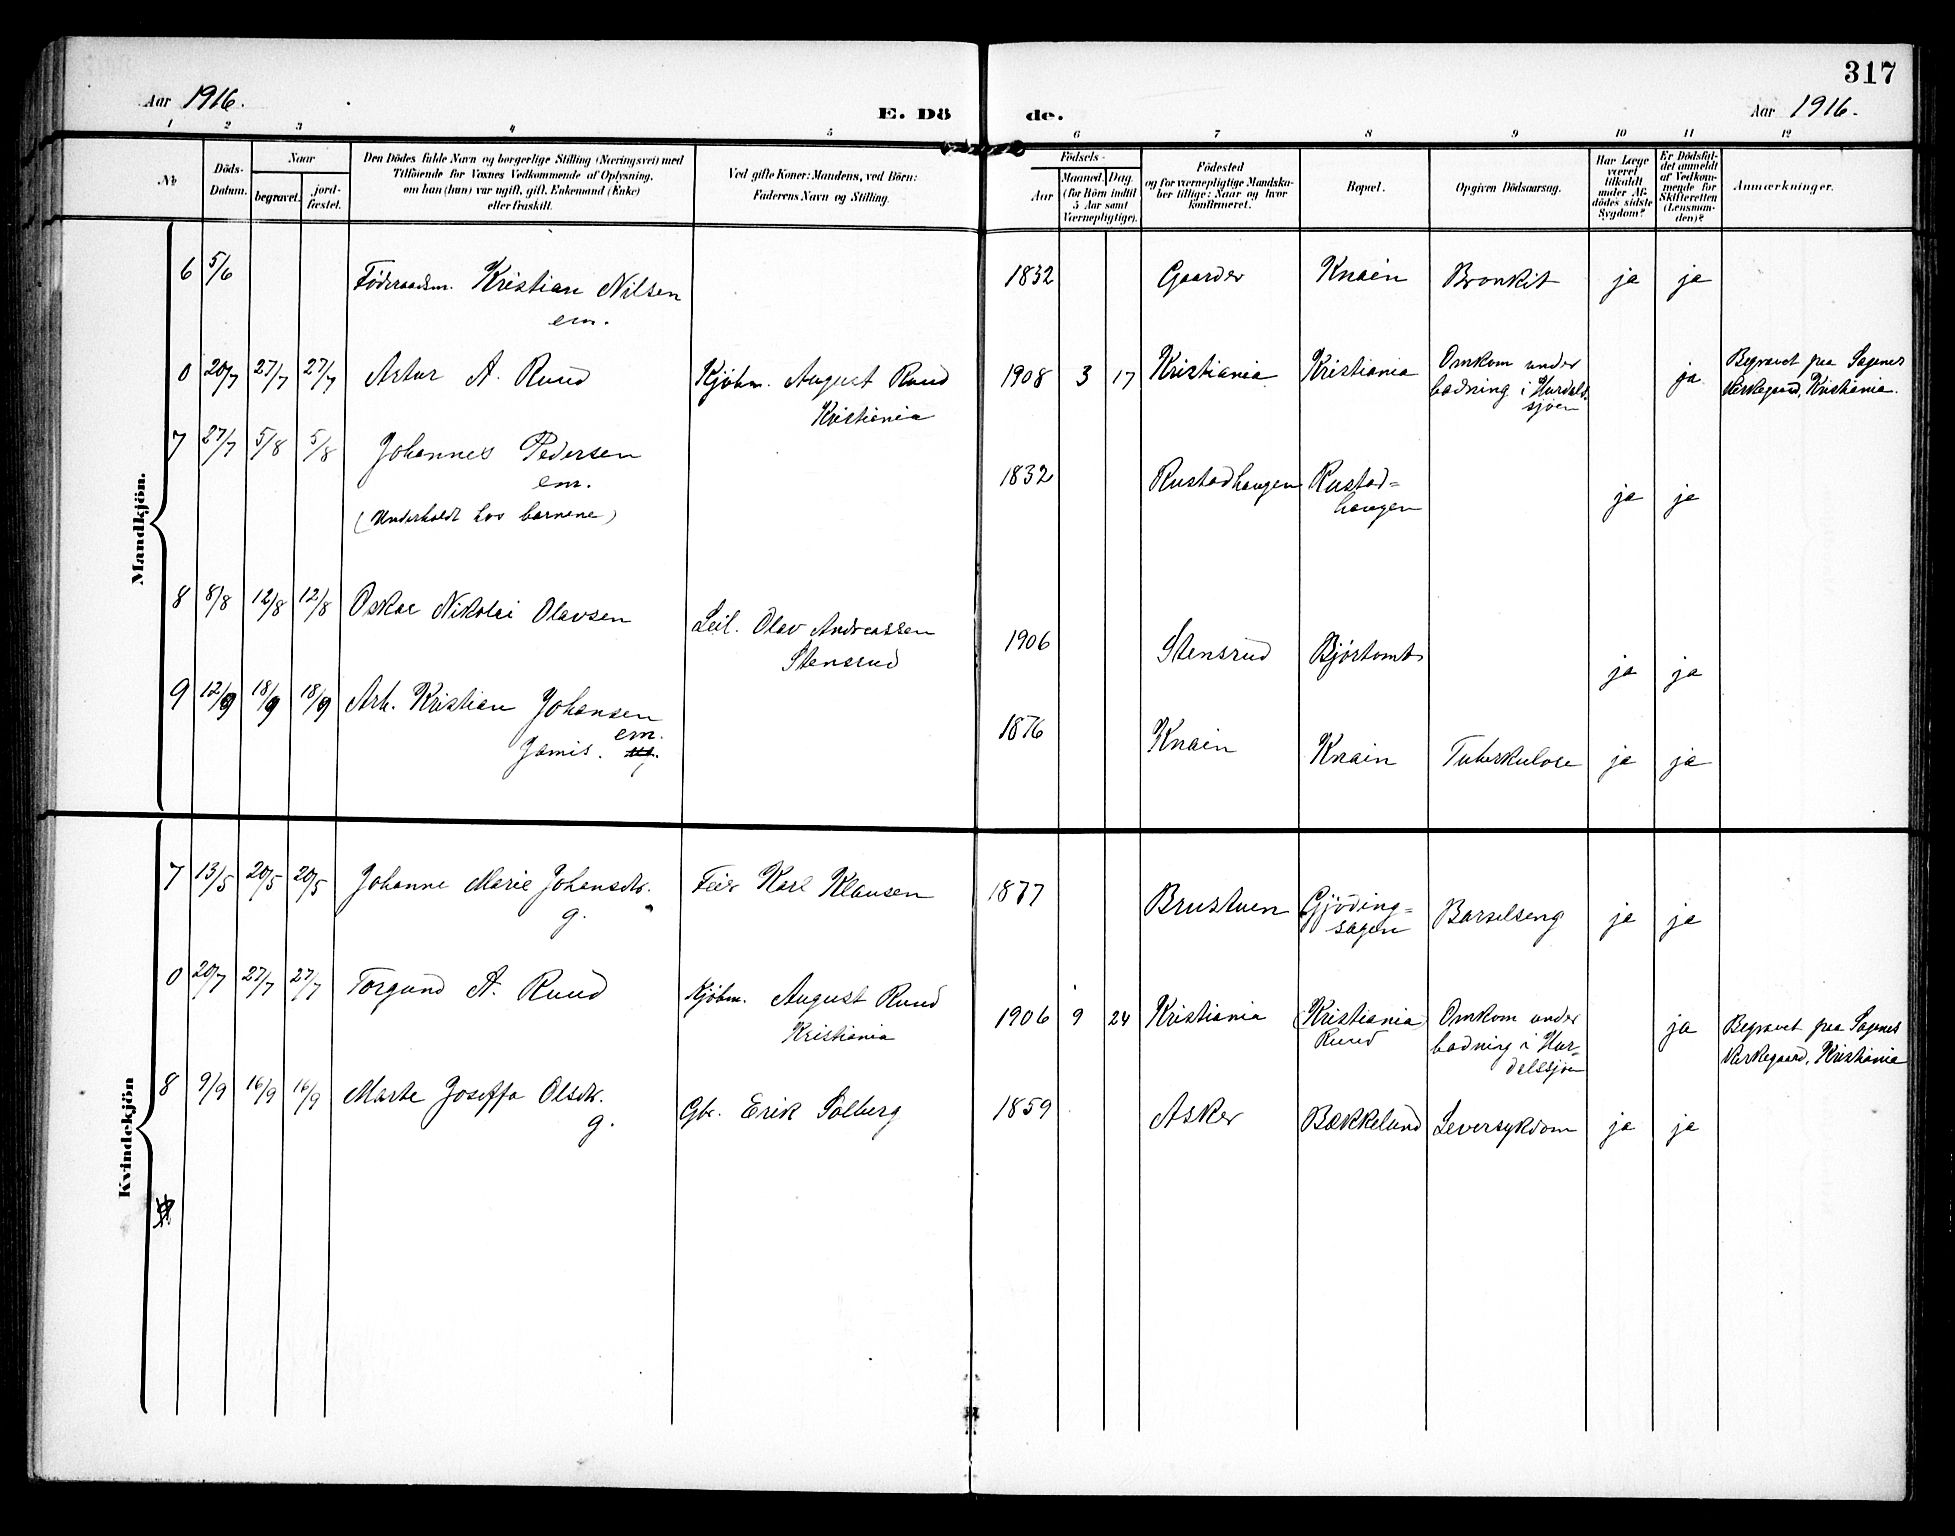 317
Aar 1916.
E. Dö
de.
Aar 1916.
1 2 3 4 5 6 7 8 9 10 11 12
No.
Döds-
Datum.
Naar
begravet.
jord-
fæstet.
Den Dödes fulde Navn og borgerlige Stilling (Næringsvei) med
Tilföiende for Voxnes Vedkommende af Oplysning,
om han (hun) var ugift, gift, Enkemand (Enke)
eller fraskilt.
Ved gifte Koner: Mandens, ved Börn:
Faderens Navn og Stilling.
Födsels-
Aar
Maaned. Dag.
(for Börn indtil
5 Aar samt
Værnepligtige).
Födested
og for værnepligtige Mandska-
ber tillige: Naar og hvor
konfirmeret.
Bopæl.
Opgiven Dödsaarsag.
Har Læge
været
tilkaldt
under Af-
dödes sidste
Sygdom?
Er Dödsfal-
det anmeldt
af Vedkom-
mende for
Skifteretten
(Lensman-
den)?
Anmærkninger.
Mandkjön.
6 5/6 Föderaadsm. Kristian Nilsen 1832 Gaarder Knain Bronkit ja ja
em.
0 20/7 27/7 27/7 Artur A. Ruud Kjøbm. August Ruud 1908 3 17 Kristiania Kristiania Omkom under ja Begravet paa Sagenes
Kristiania badning i Hurdals- Kirkegaard, Kristiania.
sjøen
7 27/7 5/8 5/8 Johannes Pedersen 1832 Rustadhaugen Rustad= ja ja
em. haugen
(Underholdt hos barnene)
8 8/8 12/8 12/8 Oskar Nikolai Olavsen Leil. Olav Andreassen 1906 Stensrud Bjørtomt ja ja
Stensrud
9 12/9 18/9 18/9 Arb. Kristian Johansen 1876 Knain Knain Tuberkulose ja ja
em.
Jamis.
Kvindekjön
7 13/5 20/5 20/5 Johanne Marie Johansdtr. Feier Karl Klausen 1877 Brustuen Gjöding= Barselseng ja ja
g. sagen
0 20/7 27/7 27/7 Torgund A. Ruud Kjøbm. August Ruud 1906 9 24 Kristiania (Kristiania) Omkom under ja Begravet paa Sagenes
Kristiania Ruud badning i Hur= Kirkegaard, Kristiania
dalssjøen
8 9/9 16/9 16/9 Marte Joseffa Olsdtr. Gbr. Erik Solberg 1859 Asker Bækkelund Leversykdom ja ja
g.